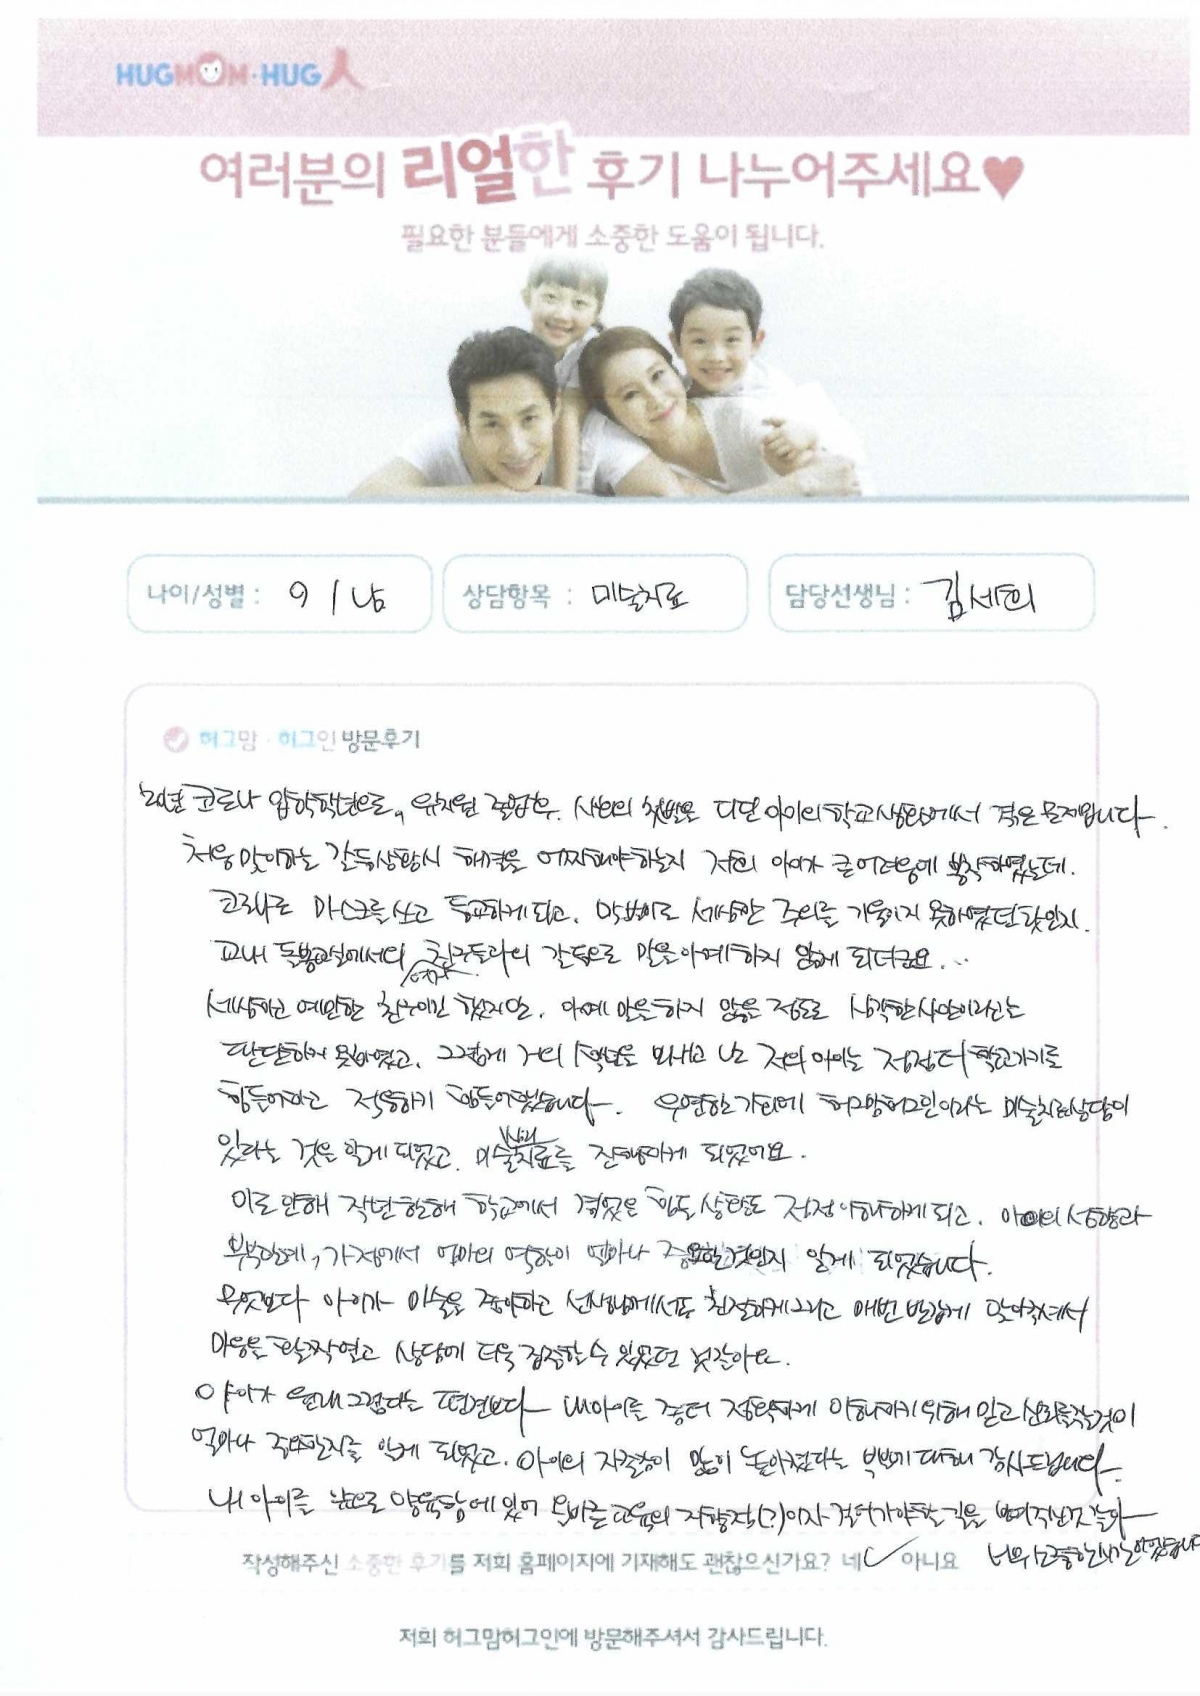 HUGMOM·HUG人
여러분의 리얼한 후기 나누어주세요♥
필요한 분들에게 소중한 도움이 됩니다.
나이/성별 : 9 / 남
상담항목 : 미술치료
담당선생님 : 김세희
허그맘·허그인 방문후기
20년 코로나 입학학년으로, 유치원 졸업후. 사회의 첫발을 디딘 아이의 학교생활에서 겪은 문제입니다.
처음 맞이하는 갈등상황시 해결을 어찌해야하는지 저희 아이가 큰 어려움에 봉착하였는데.
코로나로 마스크를 쓰고 등교하게 되고. 세심한 주의를 기울이지 못하였던 탓인지.
교내 돌봄교실에서의 친구들과의 갈등으로 말을 아예 하지 않게 되더군요...
세심하고 예민한 친구이긴 했지만. 아예 말을 하지 않을 정도로 심각한 사안이라고는
판단하지 못하였고. 그렇게 거의 1학년을 보내고 난 저희 아이는 점점 더 학교가기를
힘들어하고 적응하기 힘들어했습니다. 우연한 기회에 허그맘허그인이라는 미술치료상담이
있다는 것을 알게 되었고. 미술치료를 진행하게 되었어요.
이로 인해 작년 한해 학교에서 겪었을 힘든 상황도 점점 이해하게 되고. 아이의 성향과
부부관계, 가정에서 엄마의 역할이 얼마나 중요한것인지 알게 되었습니다.
무엇보다 아이가 미술을 좋아하고 선생님께서도 친절하게 그리고 매번 반갑게 맞아주셔서
마음을 활짝 열고 상담에 더욱 집중할 수 있었던 것 같아요.
아이가 원래 그렇다는 편견보다 내아이를 좀더 정확하게 이해하기 위해 믿고 신뢰를 줄것이
얼마나 중요한지를 알게 되었고. 아이의 자존감이 많이 높아졌다는 부분에 대해 감사드립니다.
내 아이를 앞으로 양육함에 있어 올바른 교육의 지향점(?)이자 걸어가야할 길을 보여주신것 같아
너무 소중한 시간이었습니다
작성해주신 소중한 후기를 저희 홈페이지에 기재해도 괜찮으신가요? 네 ✓ 아니요
저희 허그맘허그인에 방문해주셔서 감사드립니다.